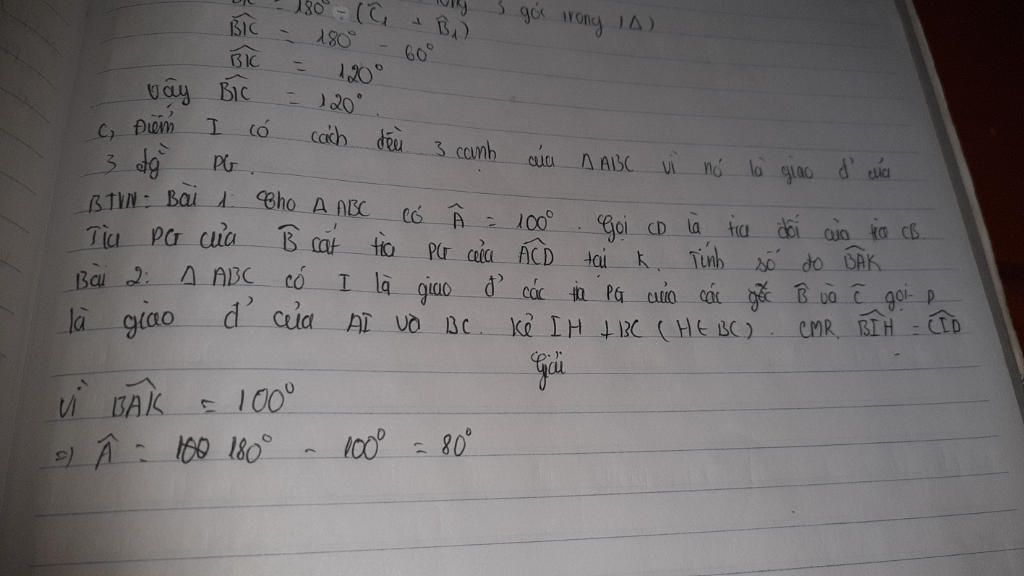 = 180° - (Ĉ₁ + B̂₁) 3 góc trong 1Δ)
BIC = 180° - 60°
BIC = 120°
Vậy BIC = 120°.
c, Điểm I có cách đều 3 cạnh của ΔABC vì nó là giao đ' của
3 đg PG.
BTVN: Bài 1: Cho ΔABC có Â = 100°. Gọi CD là tia đối của tia CB.
Tia PG của B̂ cắt tia PG của ACD tại K. Tính số đo BAK
Bài 2: Δ ABC có I là giao đ' các PG của các góc B̂ và Ĉ gọi D
là giao đ' của AI và BC. Kẻ IH ⊥ BC (H ∈ BC). CMR BIH = CID
Giải
Vì BAK = 100°
=) Â = 180° - 100° = 80°